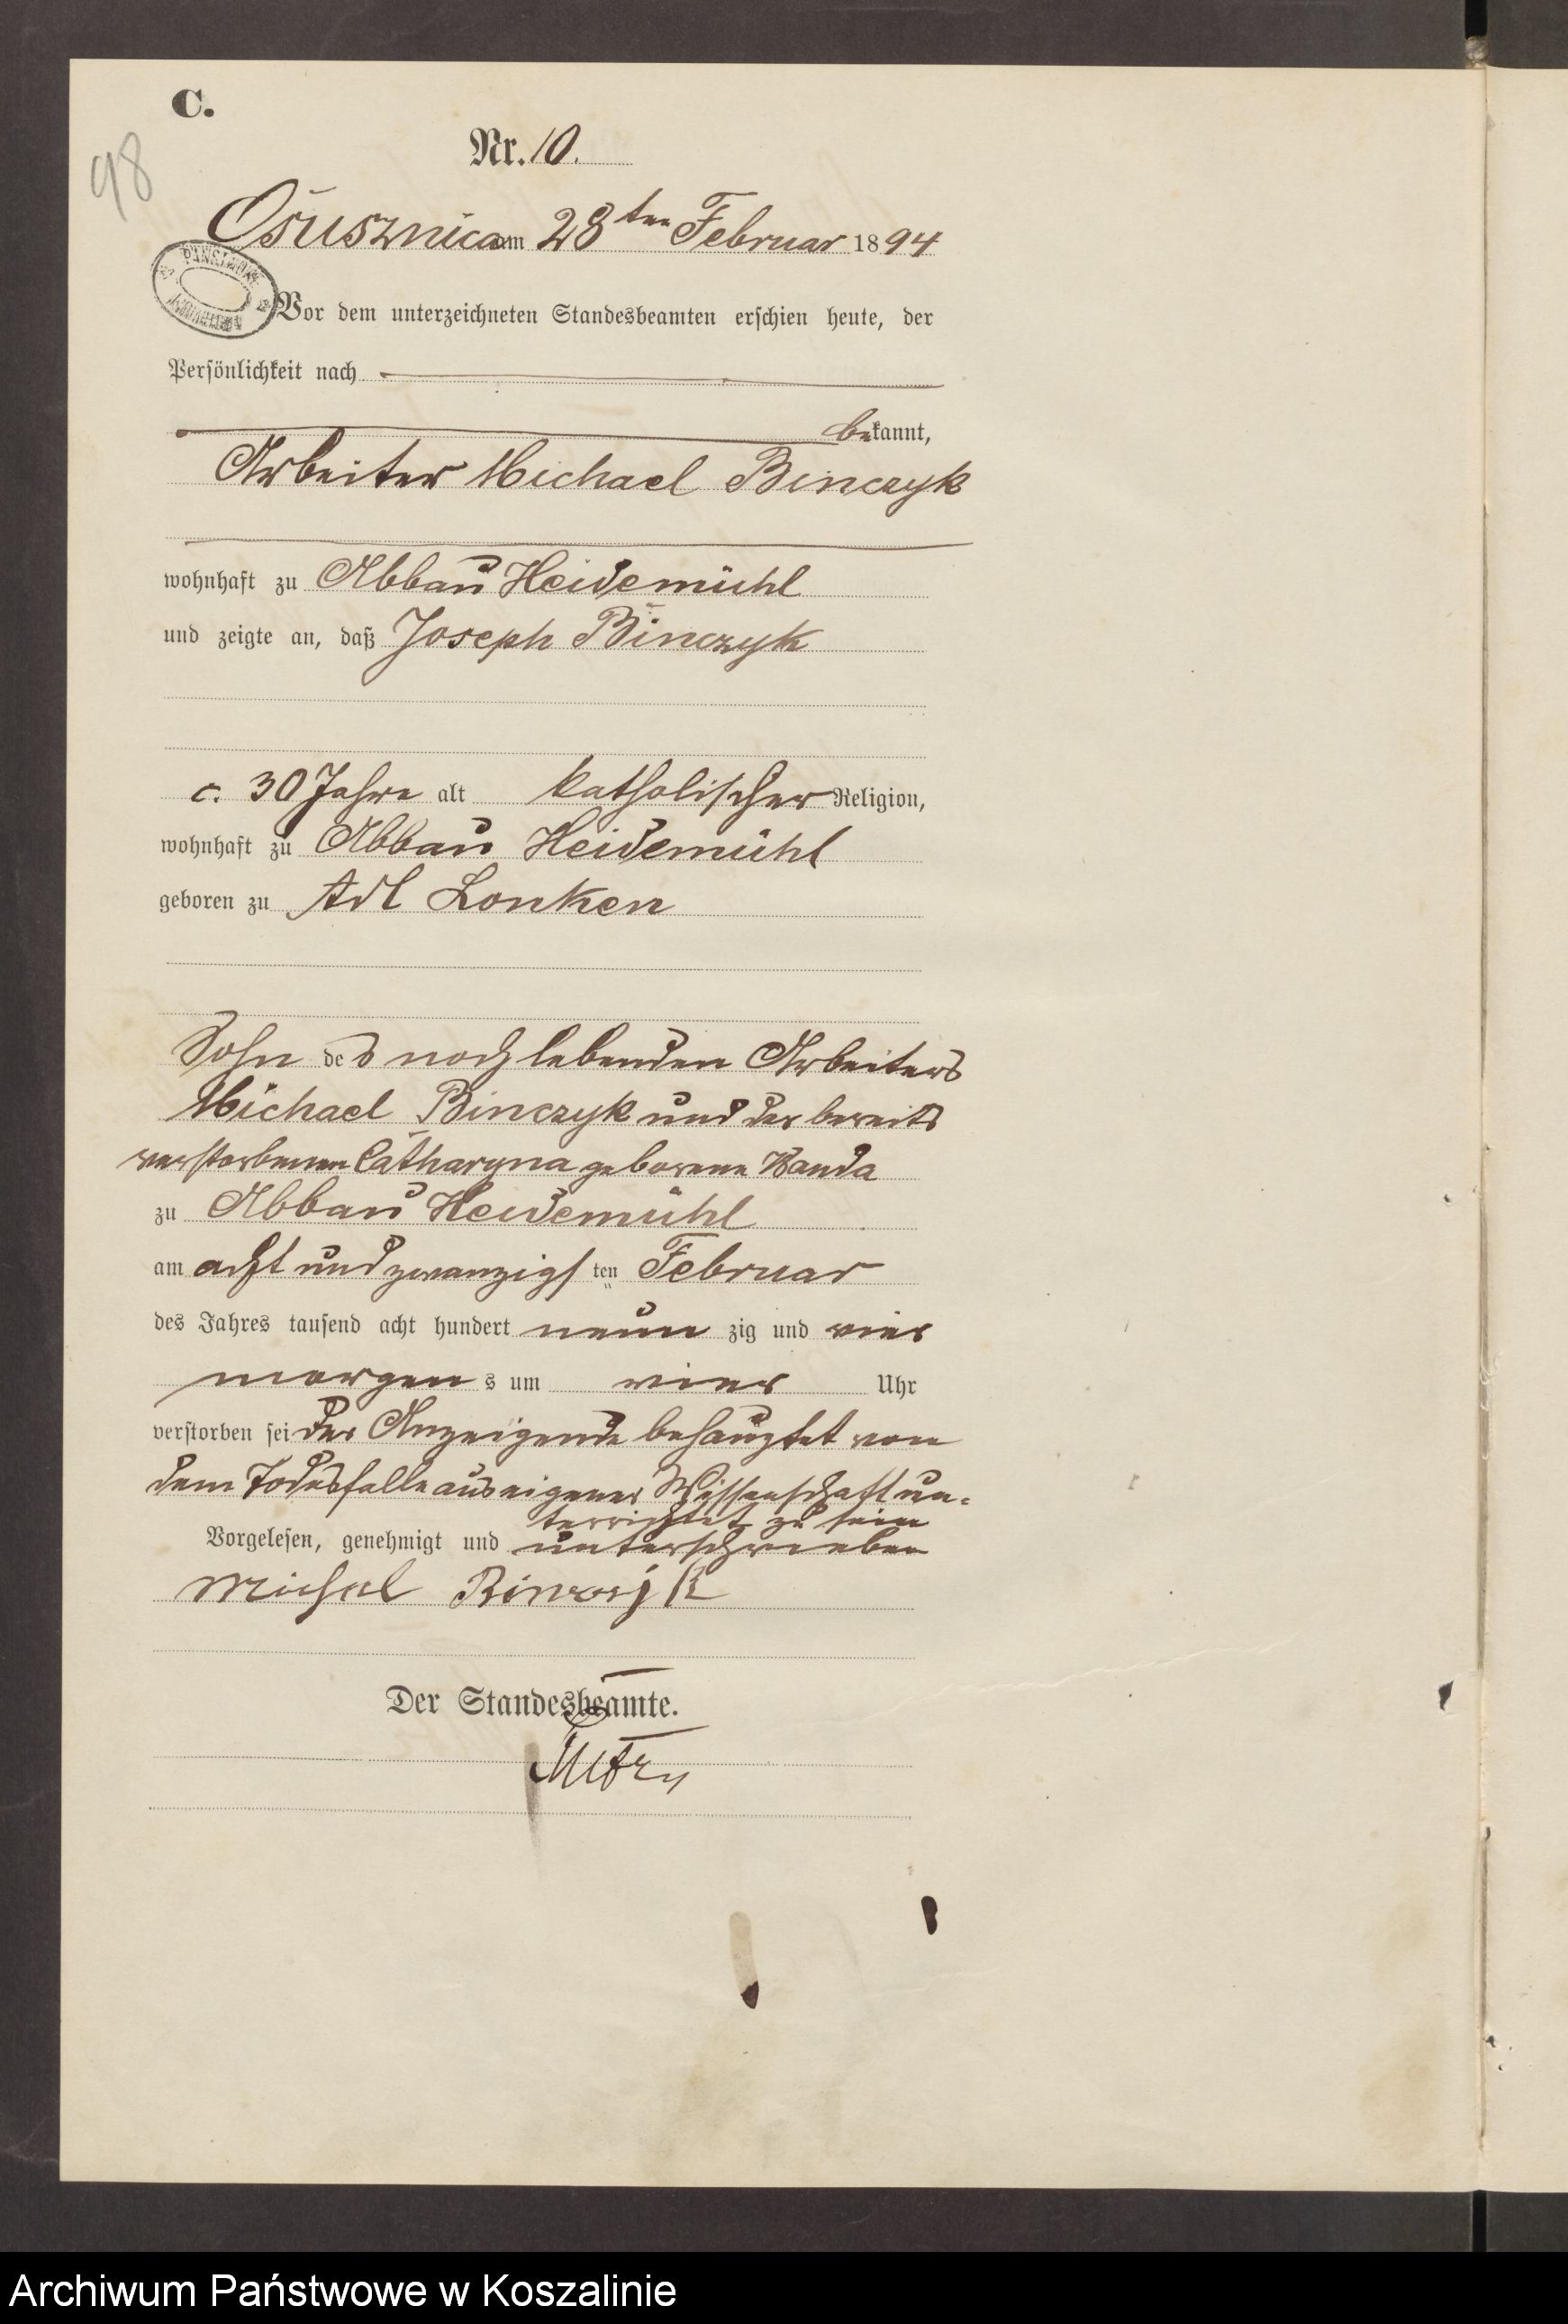 C.
98
Nr. 10.
Osusznica am 28ten Februar 1894
PAŃSTWOWE
Vor dem unterzeichneten Standesbeamten erschien heute, der
Persönlichkeit nach
bekannt,
Arbeiter Michael Binczyk
wohnhaft zu Abbau Heidemühl
und zeigte an, daß Joseph Binczyk
c. 30 Jahre alt katholischer Religion,
wohnhaft zu Abbau Heidemühl
geboren zu Adl Lonken
Sohn des noch lebenden Arbeiters
Michael Binczyk und der bereits
verstorbenen Catharyna geborene Wanda
zu Abbau Heidemühl
am acht und zwanzigsten Februar
des Jahres tausend acht hundert neunzig und vier
morgens um vier Uhr
verstorben sei der Anzeigende behauptet von
dem Todesfalle aus eigener Wissenschaft un-
terrichtet zu sein
Vorgelesen, genehmigt und unterschrieben
Michal Binczyk
Der Standesbeamte.
Archiwum Państwowe w Koszalinie